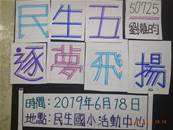 民生五
50725
劉蘊昀
逐夢飛揚
時間：2079年6月18日
地點：民生國小活動中心